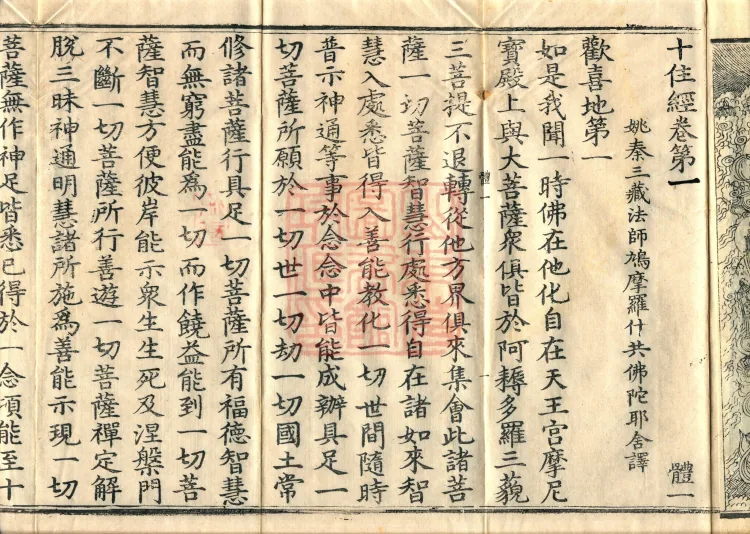 十住經卷第一 體一
姚秦三藏法師鳩摩羅什共佛陀耶舍譯
歡喜地第一
如是我聞一時佛在他化自在天王宮摩尼
寶殿上與大菩薩衆俱皆於阿耨多羅三藐
體一
三菩提不退轉從他方界俱來集會此諸菩
薩一切菩薩智慧行處悉得自在諸如來智
慧入處悉皆得入善能教化一切世間隨時
普示神通等事於念念中皆能成辦具足一
切菩薩所願於一切世一切劫一切國土常
修諸菩薩行具足一切菩薩所有福德智慧
而無窮盡能爲一切而作饒益能到一切菩
薩智慧方便彼岸能示衆生生死及涅槃門
不斷一切菩薩所行善遊一切菩薩禪定解
脫三昧神通明慧諸所施爲善能示現一切
菩薩無作神足皆悉已得於一念頃能至十